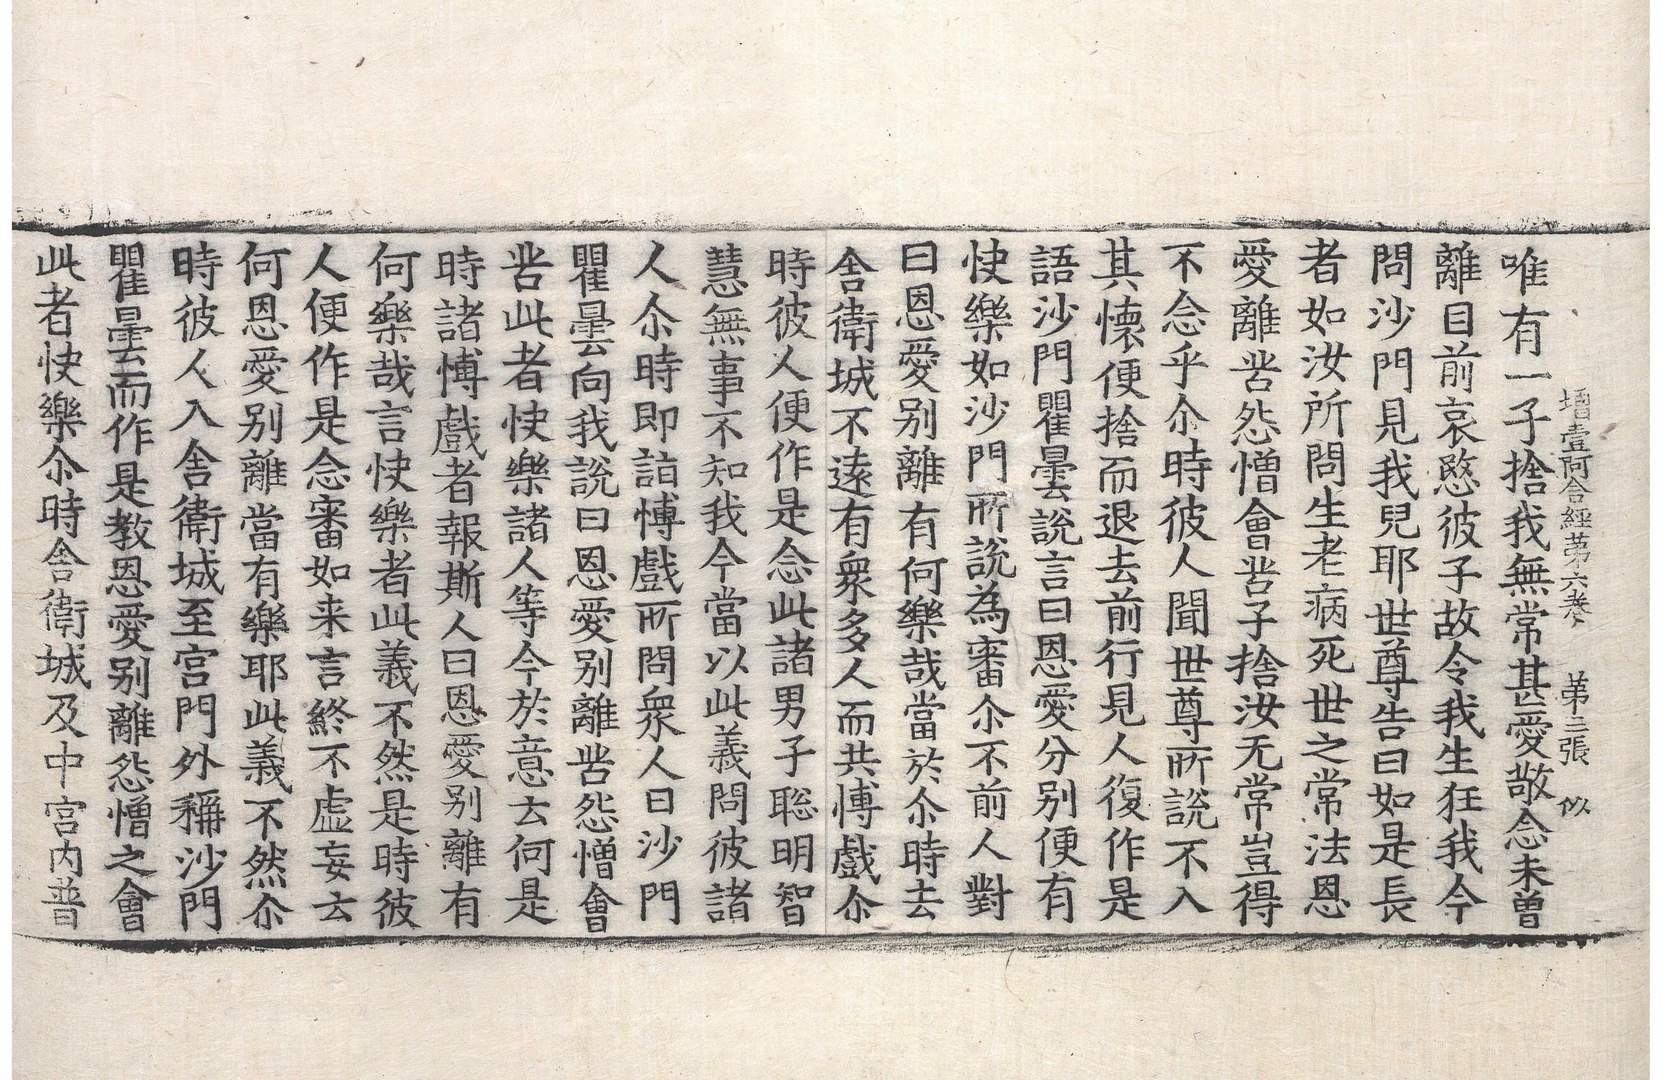 增壹阿含經第六卷 第三張 似
唯有一子捨我無常甚愛敬念未曽
離目前哀愍彼子故令我生狂我今
問沙門見我兒耶世尊告曰如是長
者如汝所問生老病死世之常法恩
愛離苦怨憎會苦子捨汝无常豈得
不念乎尒時彼人聞世尊所說不入
其懷便捨而退去前行見人復作是
語沙門瞿曇說言曰恩愛分別便有
快樂如沙門所說為審尒不前人對
曰恩愛別離有何樂哉當於尒時去
舍衛城不遠有衆多人而共博戲尒
時彼人便作是念此諸男子聡明智
慧無事不知我今當以此義問彼諸
人尒時即詣博戲所問衆人曰沙門
瞿曇向我說曰恩愛别離苦怨憎會
苦此者快樂諸人等今於意云何是
時諸博戲者報斯人曰恩愛别離有
何樂哉言快樂者此義不然是時彼
人便作是念審如来言終不虛妄云
何恩愛别離當有樂耶此義不然尒
時彼人入舍衛城至宮門外稱沙門
瞿曇而作是教恩愛别離怨憎之會
此者快樂尒時舍衛城及中宮内普